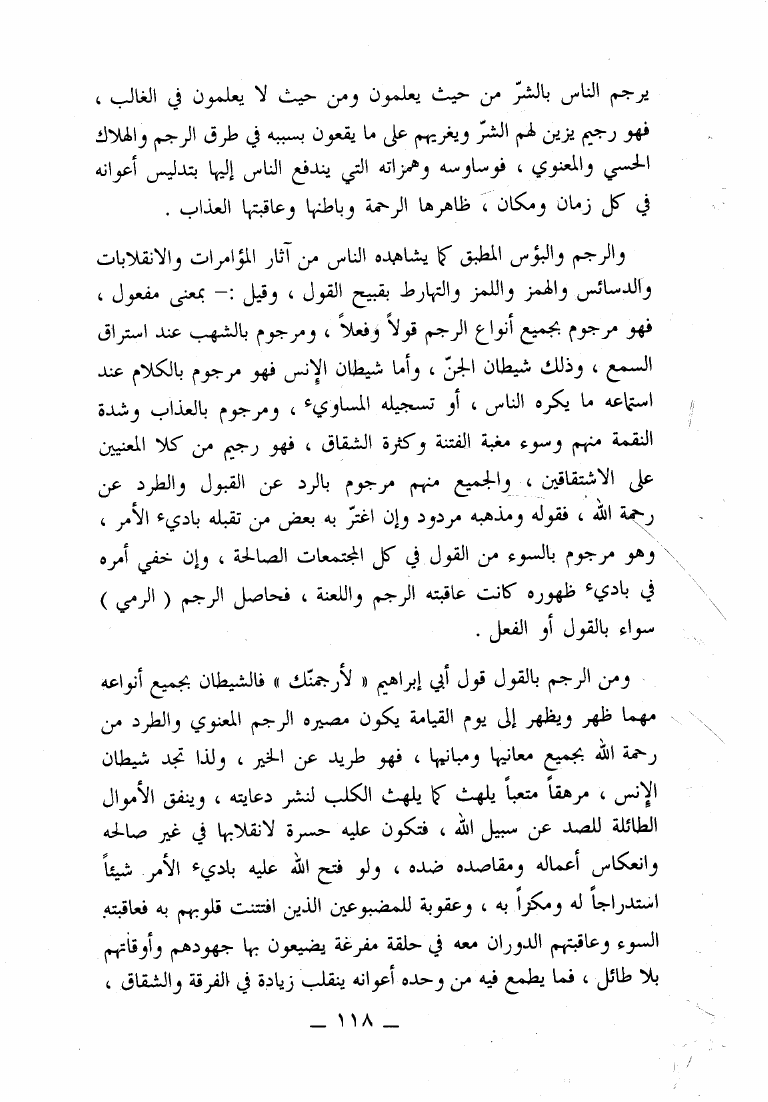 يرجم الناس بالشرّ من حيث يعلمون ومن حيث لا يعلمون في الغالب ،
فهو رجيم يزين لهم الشرّ ويغريهم على ما يقعون بسببه في طرق الرجم والهلاك
الحسي والمعنوي ، فوساوسه وهمزاته التي يندفع الناس إليها بتدليس أعوانه
في كل زمان ومكان ، ظاهرها الرحمة وباطنها وعاقبتها العذاب .
والرجم والبؤس المطبق كما يشاهده الناس من آثار المؤامرات والانقلابات
والدسائس والهمز واللمز والتهارط بقبيح القول ، وقيل :— بمعنى مفعول ،
فهو مرجوم بجميع أنواع الرجم قولاً وفعلاً ، ومرجوم بالشهب عند استراق
السمع ، وذلك شيطان الجنّ ، وأما شيطان الإنس فهو مرجوم بالكلام عند
استماعه ما يكره الناس ، أو تسجيله المساويء ، ومرجوم بالعذاب وشدة
النقمة منهم وسوء مغبة الفتنة وكثرة الشقاق ، فهو رجيم من كلا المعنيين
على الاشتقاقين ، والجميع منهم مرجوم بالرد عن القبول والطرد عن
رحمة الله ، فقوله ومذهبه مردود وإن اغترّ به بعض من تقبله باديء الأمر ،
وهو مرجوم بالسوء من القول في كل المجتمعات الصالحة ، وإن خفي أمره
في باديء ظهوره كانت عاقبته الرجم واللعنة ، فحاصل الرجم ( الرمي )
سواء بالقول أو الفعل .
ومن الرجم بالقول قول أبي إبراهيم « لأرجمنّك » فالشيطان بجميع أنواعه
مهما ظهر ويظهر إلى يوم القيامة يكون مصيره الرجم المعنوي والطرد من
رحمة الله بجميع معانيها ومبانيها ، فهو طريد عن الخير ، ولذا تجد شيطان
الإنس ، مرهقاً متعباً يلهث كما يلهث الكلب لنشر دعايته ، وينفق الأموال
الطائلة للصد عن سبيل الله ، فتكون عليه حسرة لانقلابها في غير صالحه
وانعكاس أعماله ومقاصده ضده ، ولو فتح الله عليه باديء الأمر شيئاً
استدراجاً له ومكراً به ، وعقوبة للمضبوعين الذين افتتنت قلوبهم به فعاقبته
السوء وعاقبتهم الدوران معه في حلقة مفرغة يضيعون بها جهودهم وأوقاتهم
بلا طائل ، فما يطمع فيه من وحده أعوانه ينقلب زيادة في الفرقة والشقاق ،
— ١١٨ —